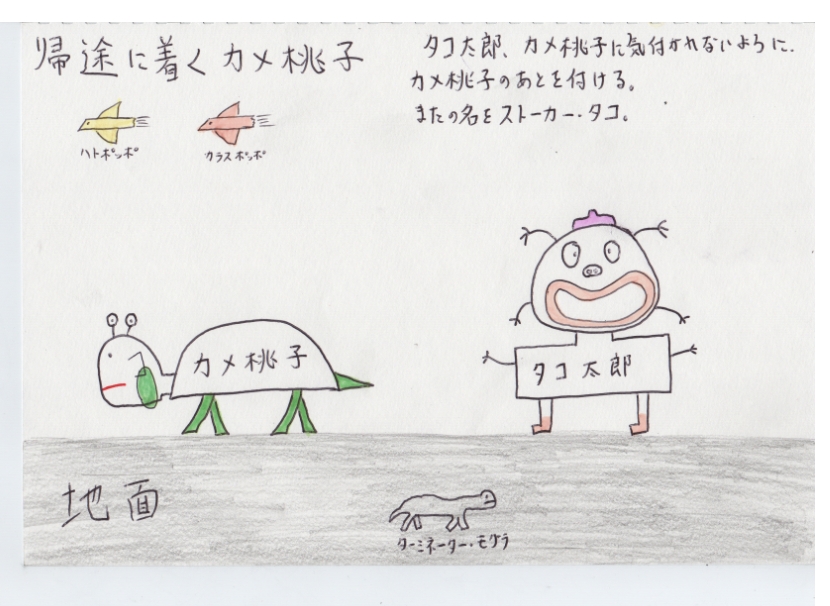 帰途に着くカメ桃子
タコ太郎、カメ桃子に気付かれないように、
カメ桃子のあとを付ける。
またの名をストーカー・タコ。
ハトポッポ
カラスポッポ
カメ桃子
タコ太郎
地面
ターミネーター・モグラ